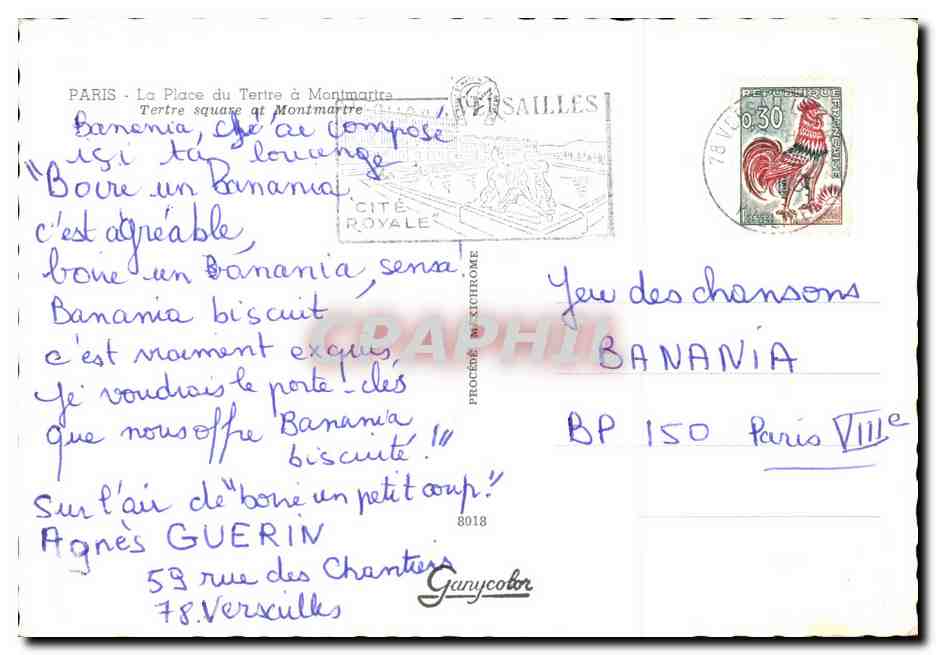 PARIS - La Place du Tertre à Montmartre
Tertre square at Montmartre
Banania, j'ai composé
içi ta louenge
"Boire un Banania
c'est agréable,
boire un Banania, sensa!
Banania biscuit
c'est vraiment exquis
Je voudrais le porte-clés
que nous offre Banania
biscuité!"
Sur l'air de "boire un petit coup"
Agnès GUERIN
59 rue des Chantiers
78.Versailles
VERSAILLES
"CITÉ
ROYALE"
REPUBLIQUE FRANÇAISE
0,30
78 VERSAILLES
PROCÉDÉ MAXICHROME
CPAPHIL
Jeu des chansons
BANANIA
BP 150 Paris VIIIe
8018
Ganycolor